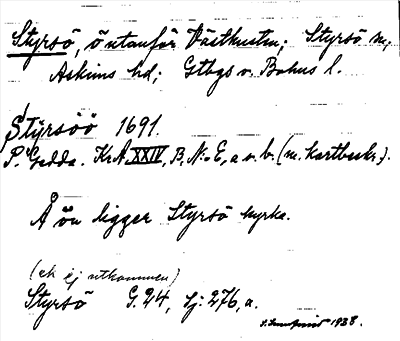 Styrsö, ö utanför Västkusten; Styrsö sn,
Askims hd; Gtbgs o. Bohus l.
Styrsöö 1691.
P. Gedda. KrA XXIV, B, N:o E, a o. b. (m. kartbeskr.).
Å ön ligger Styrsö kyrka.
(ek ej utkommen)
Styrsö G. 24, Sj: 276, a.
1938.